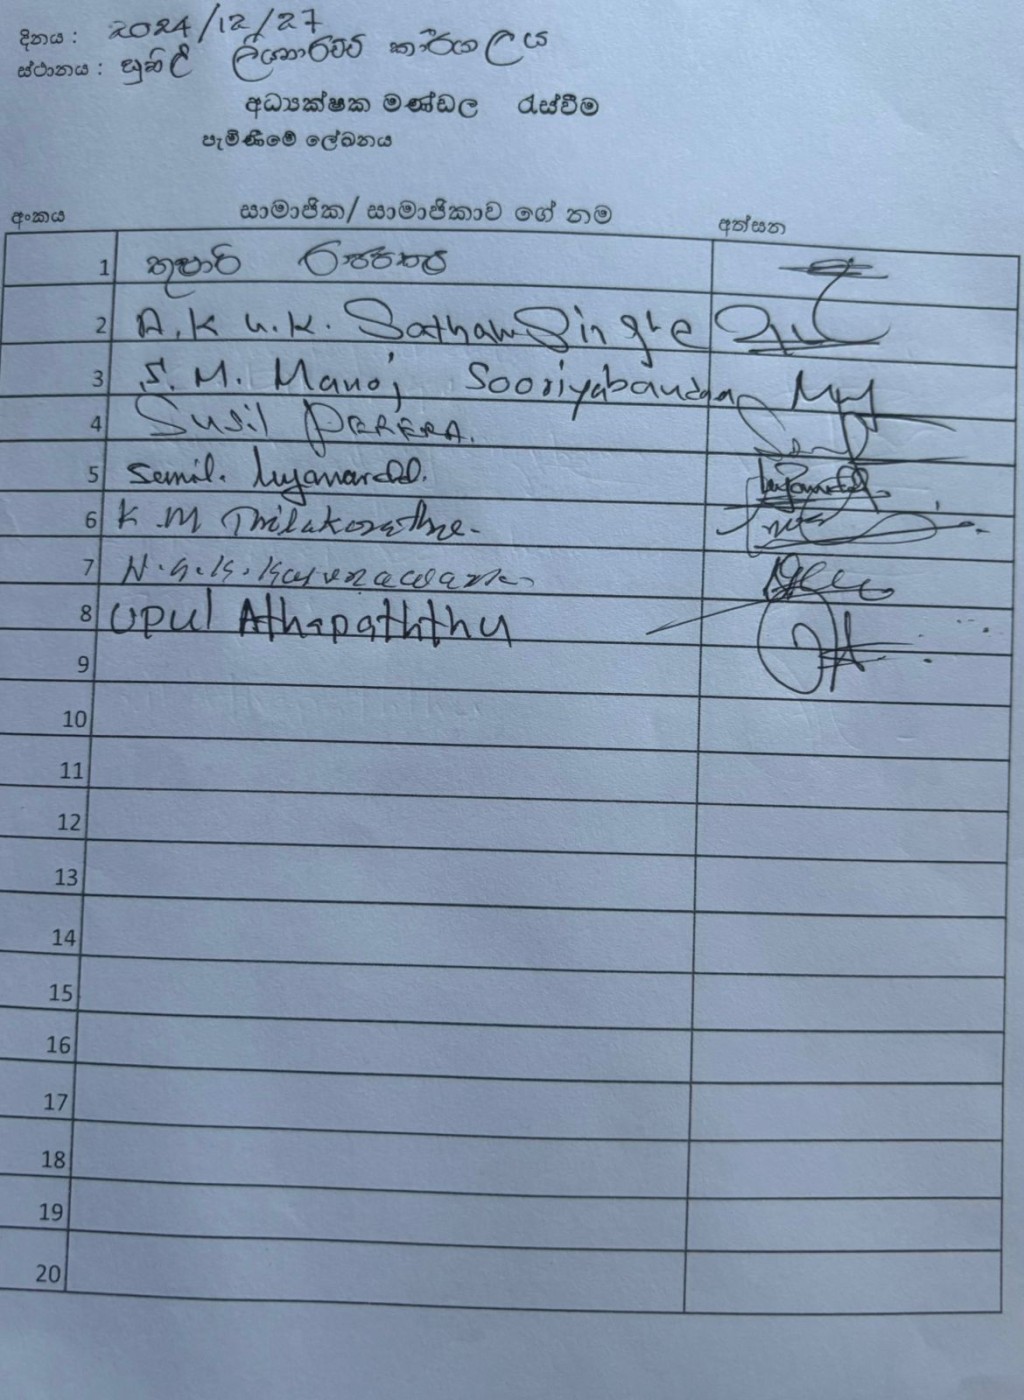 දිනය : 2024/12/27
ස්ථානය : සුනිල් ලියනාරච්චි කාර්යාලය
අධ්‍යක්ෂක මණ්ඩල රැස්වීම
පැමිණීමේ ලේඛනය
අංකය සාමාජික/ සාමාජිකාව ගේ නම අත්සන
1 තුෂාරි
2 A.K U.K. SathanSinghe
3 S. M. Manoj Sooriyabandara
4 Susil PERERA.
5
6 K.M Thilakarathne-
7 N.G.K. Karunawa
8 Upul Athapaththu
9
10
11
12
13
14
15
16
17
18
19
20